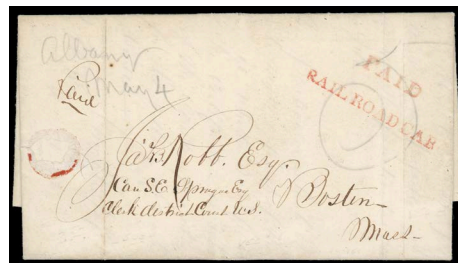 Albany
May 4
Paid
PAID
RAIL ROAD CAR
Jas Robb. Esq.
Care S.E. Sprague Esq
Clerk district Court U.S.
Boston
Mass